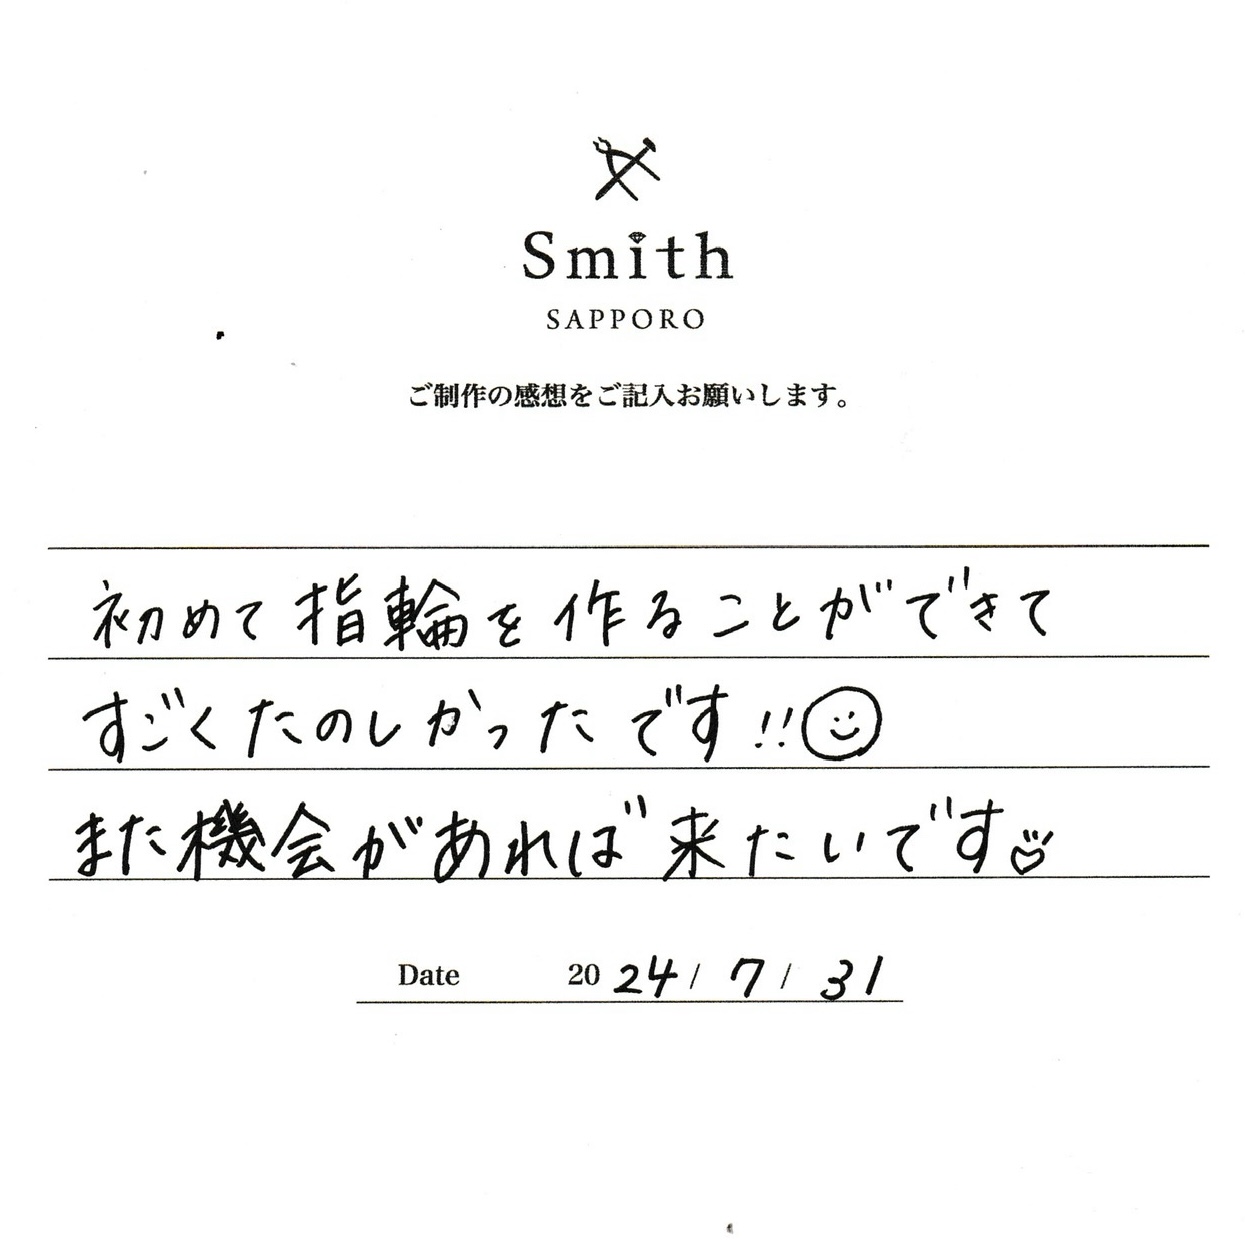 Smith
SAPPORO
ご制作の感想をご記入お願いします。
初めて指輪を作ることができて
すごくたのしかったです!!
また機会があれば来たいです
Date 2024/7/31